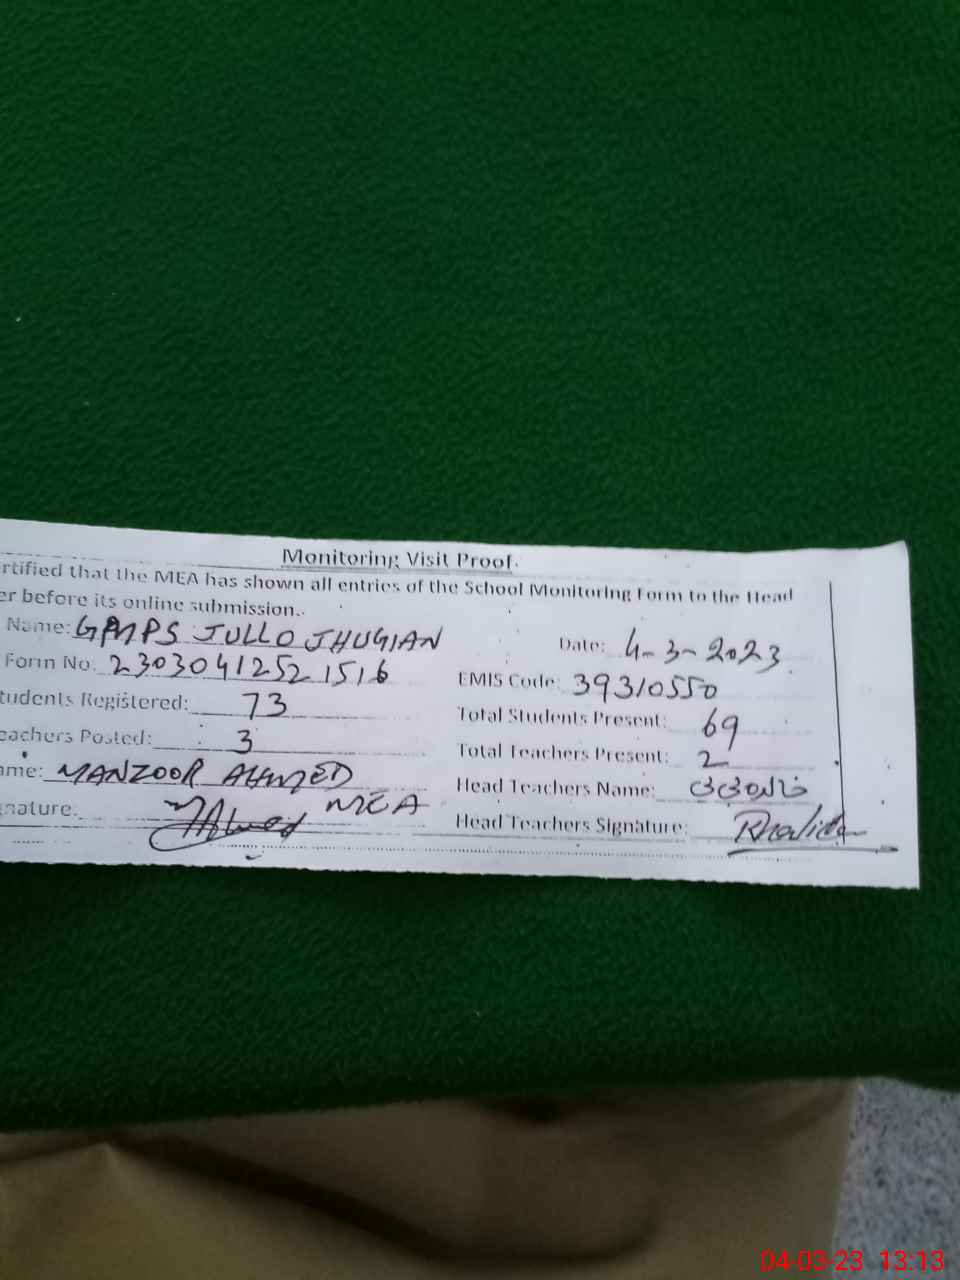 Monitoring Visit Proof.
rtified that the MEA has shown all entries of the School Monitoring Form to the Head
er before its online submission.
Name: GMPS JULLO JHUGIAN Date: 4-3-2023
Form No: 2303041252 1516 EMIS Code: 39310550
tudents Registered: 73 Total Students Present: 69
eachers Posted: 3 Total Teachers Present: 2
ame: MANZOOR AHMED Head Teachers Name:
gnature: MEA Head Teachers Signature:
04-03-23 13:13